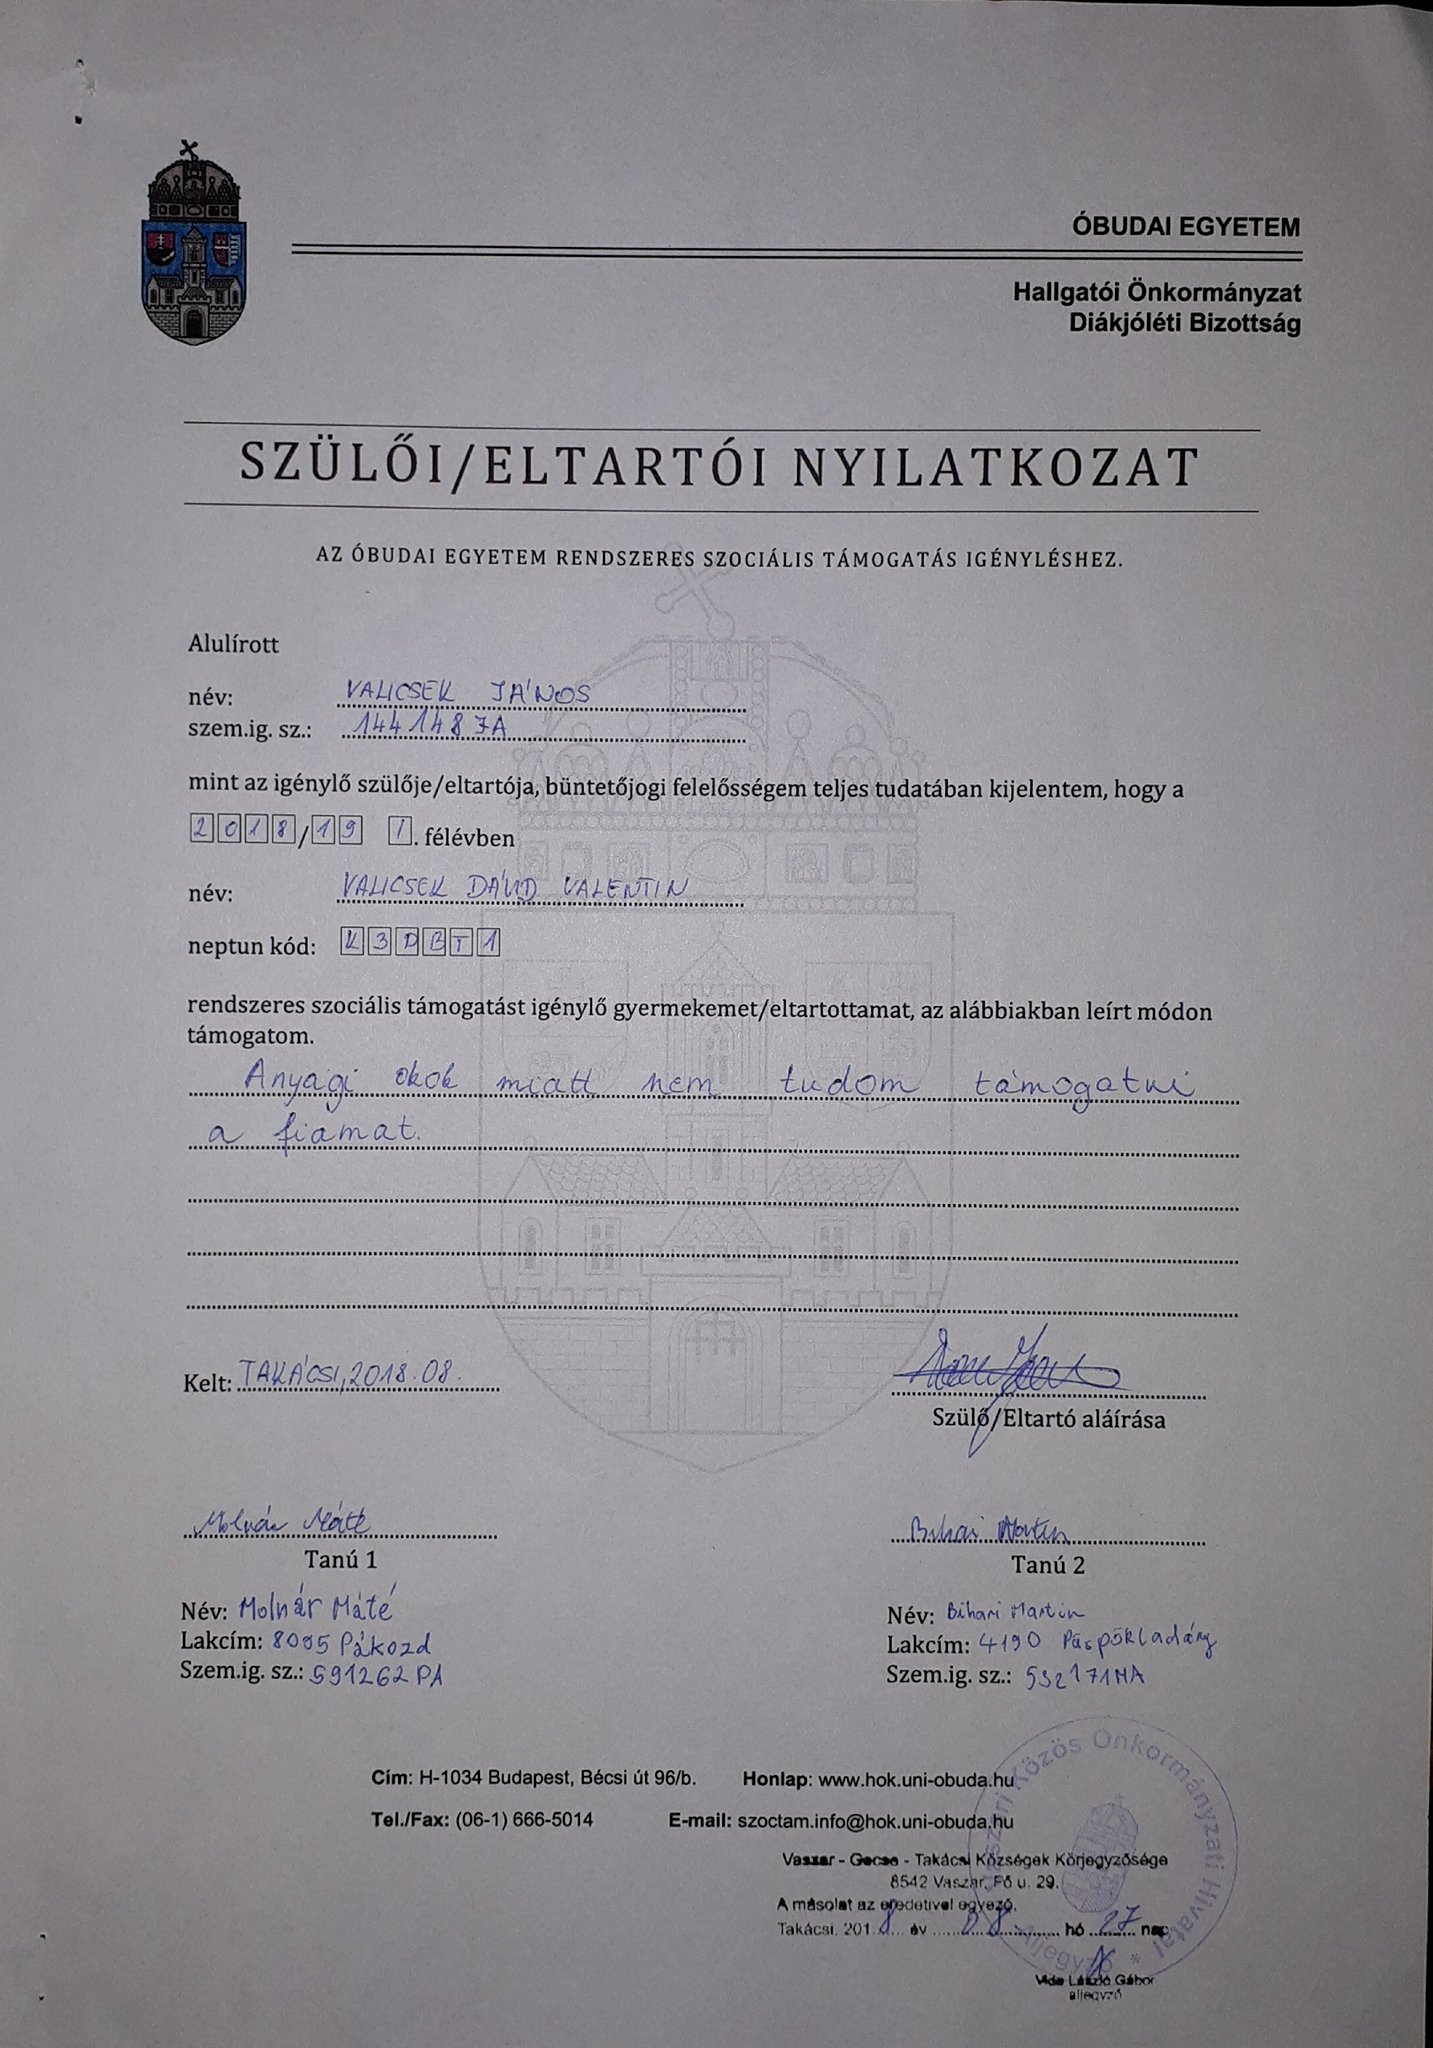 ÓBUDAI EGYETEM
Hallgatói Önkormányzat
Diákjóléti Bizottság
SZÜLŐI/ELTARTÓI NYILATKOZAT
AZ ÓBUDAI EGYETEM RENDSZERES SZOCIÁLIS TÁMOGATÁS IGÉNYLÉSHEZ.
Alulírott
név: VALICSEK JÁNOS
szem.ig. sz.: 1441487A
mint az igénylő szülője/eltartója, büntetőjogi felelősségem teljes tudatában kijelentem, hogy a
2018/19 I. félévben
név: VALICSEK DÁVID VALENTIN
neptun kód: K3DBT1
rendszeres szociális támogatást igénylő gyermekemet/eltartottamat, az alábbiakban leírt módon
támogatom.
Anyagi okok miatt nem tudom támogatni
a fiamat.
Kelt: TAKÁCSI, 2018.08.
Szülő/Eltartó aláírása
Molnár Máté
Bihari Martin
Tanú 1
Tanú 2
Név: Molnár Máté
Lakcím: 8095 Pákozd
Szem.ig. sz.: 591262PA
Név: Bihari Martin
Lakcím: 4190 Püspökladány
Szem.ig. sz.: 532171MA
Cím: H-1034 Budapest, Bécsi út 96/b. Honlap: www.hok.uni-obuda.hu
Tel./Fax: (06-1) 666-5014 E-mail: szoctam.info@hok.uni-obuda.hu
Vaszari Közös Önkormányzati Hivatal
Aljegyző *
Vaszar - Gecse - Takácsi Községek Körjegyzősége
8542 Vaszar, Fő u. 29.
A másolat az eredetivel egyező.
Takácsi, 2018 év 08 hó 27 nap
Vida László Gábor
aljegyző